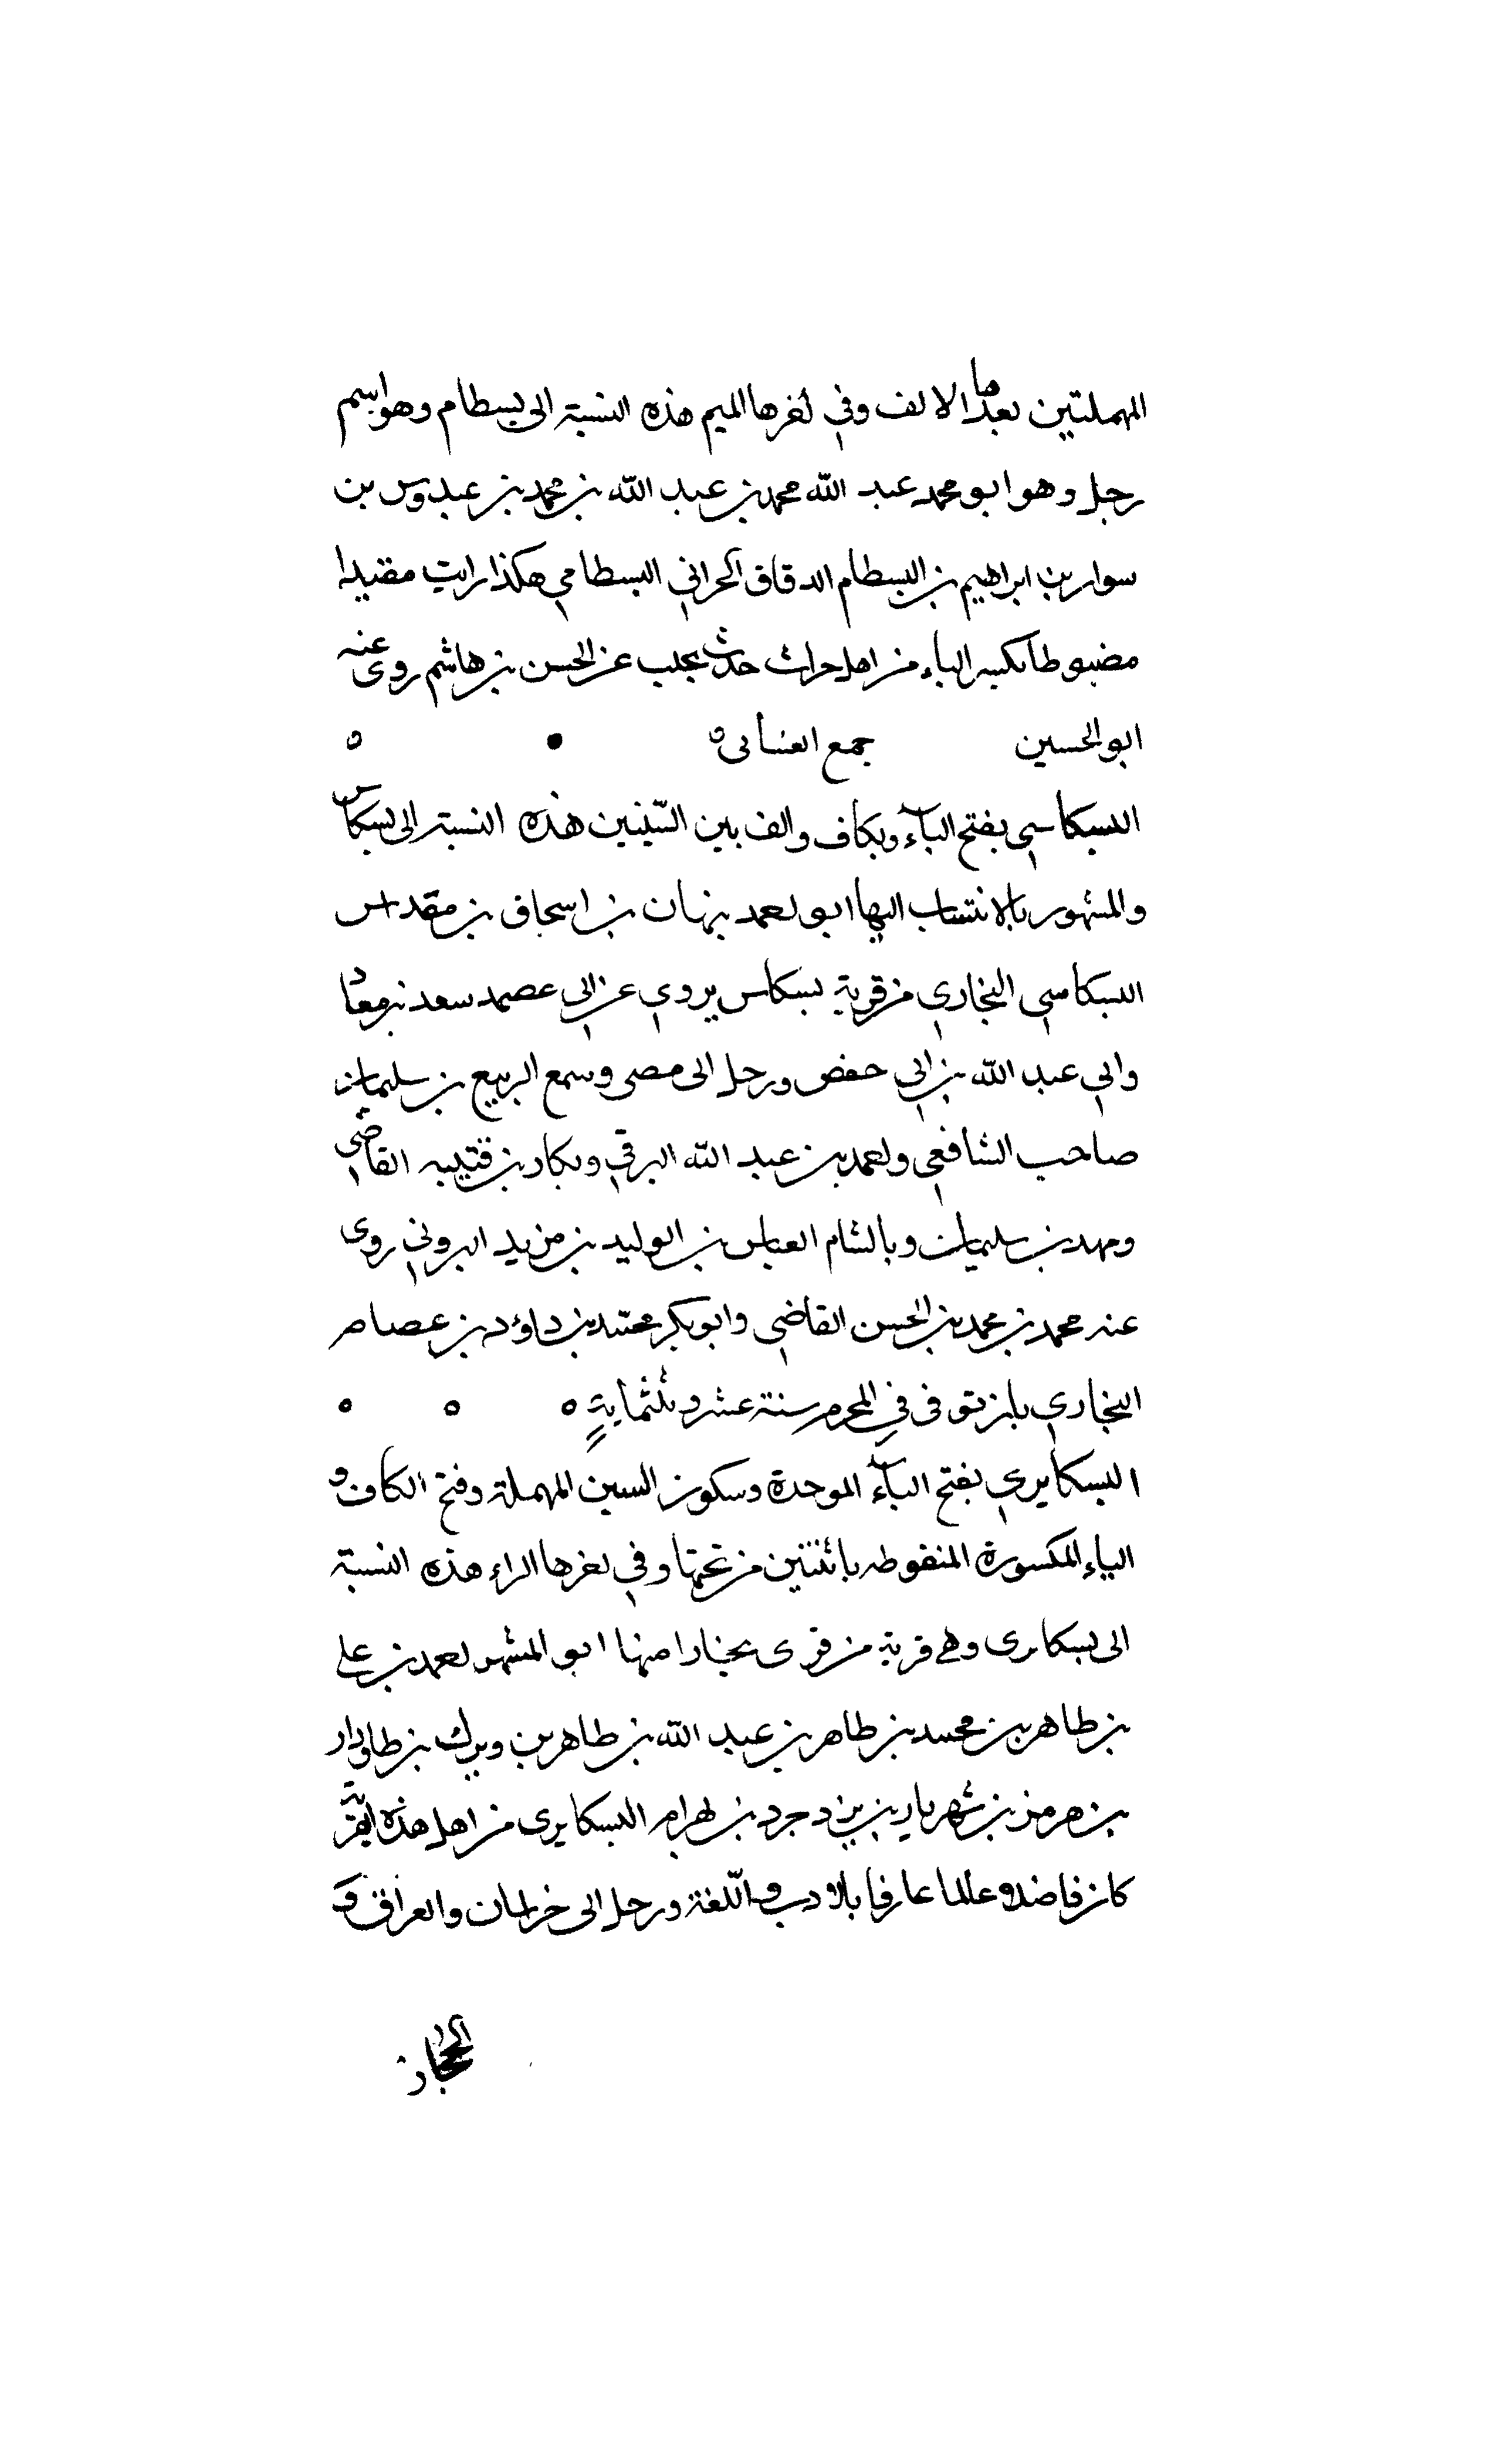 المهملتين بعدها الالف وفي اخرها الميم هذه النسبة الى بسطام وهو اسم
رجل وهو ابو محمد عبد الله محمد بن عبد الله بن محمد بن عبدوس بن
سوار بن ابراهيم بن البسطام الدقاق الحراني البسطامي هكذا رايت مقيدا
مضبوطا بكسر الباء من اهل حران حدث بحلب عن الحسن بن هاشم روى عنه
ابو الحسين جمع الغسانى ه ه
البسكاسي بفتح البآء وبكاف والف بين السّينين هذه النسبة الى بسكاس
والمشهور بالانتساب اليها ابو احمد نبهان بن اسحاق بن مقداس
البسكاسي البخاري من قرية بسكاس يروي عن ابي عصمه سعد بن معاذ
وابي عبد الله بن ابي حفص ورحل الى مصر وسمع الربيع بن سليمان
صاحب الشافعي واحمد بن عبد الله البرقي وبكار بن قتيبه القاضي
ومهد بن سليمان وبالشام العباس بن الوليد بن مزيد البروني روى
عنه محمد بن محمد بن الحسن القاضي وابو بكر محمّد بن داؤد بن عصام
البخاري توفى في المحرم سنة عشر وثلثماية ه ه ه
البسكايري بفتح البآء الموحدة وسكون السين المهملة وفتح الكاف و
الياء المكسورة المنقوطه باثنتين من تحتها وفي اخرها الراء هذه النسبة
الى بسكاىرى وهي قرية من قرى بخارا منها ابو المشهر احمد بن علي
بن طاهر بن محمد بن طاهر بن عبد الله بن طاهر بن ويرك بن
بن هرمز بن شهريار بن يزدجرد بن بهرام البسكايرى من اهل هذه القرية
كان فاضلا وعالما عارفا بالادب واللّغة ورحل الى خراسان والعراق و
الحجاز